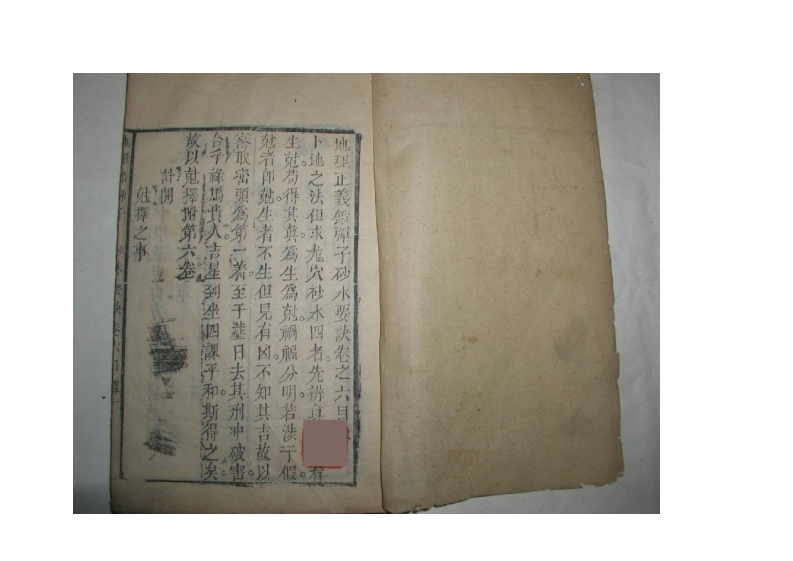 地理正義鉛彈子砂水要訣卷之六目
卜地之法但求龍穴砂水四者先辨真 看
生尅苟得其真爲生爲尅禍福分明若涉于假
尅者卽尅生者不生但見有凶不知其吉故以
審取富頭爲第一着至于塟日去其刑冲破害
合乎祿馬貴人吉星到坐四課平和斯得之矣
故以尅擇附第六卷
計開
尅擇之事